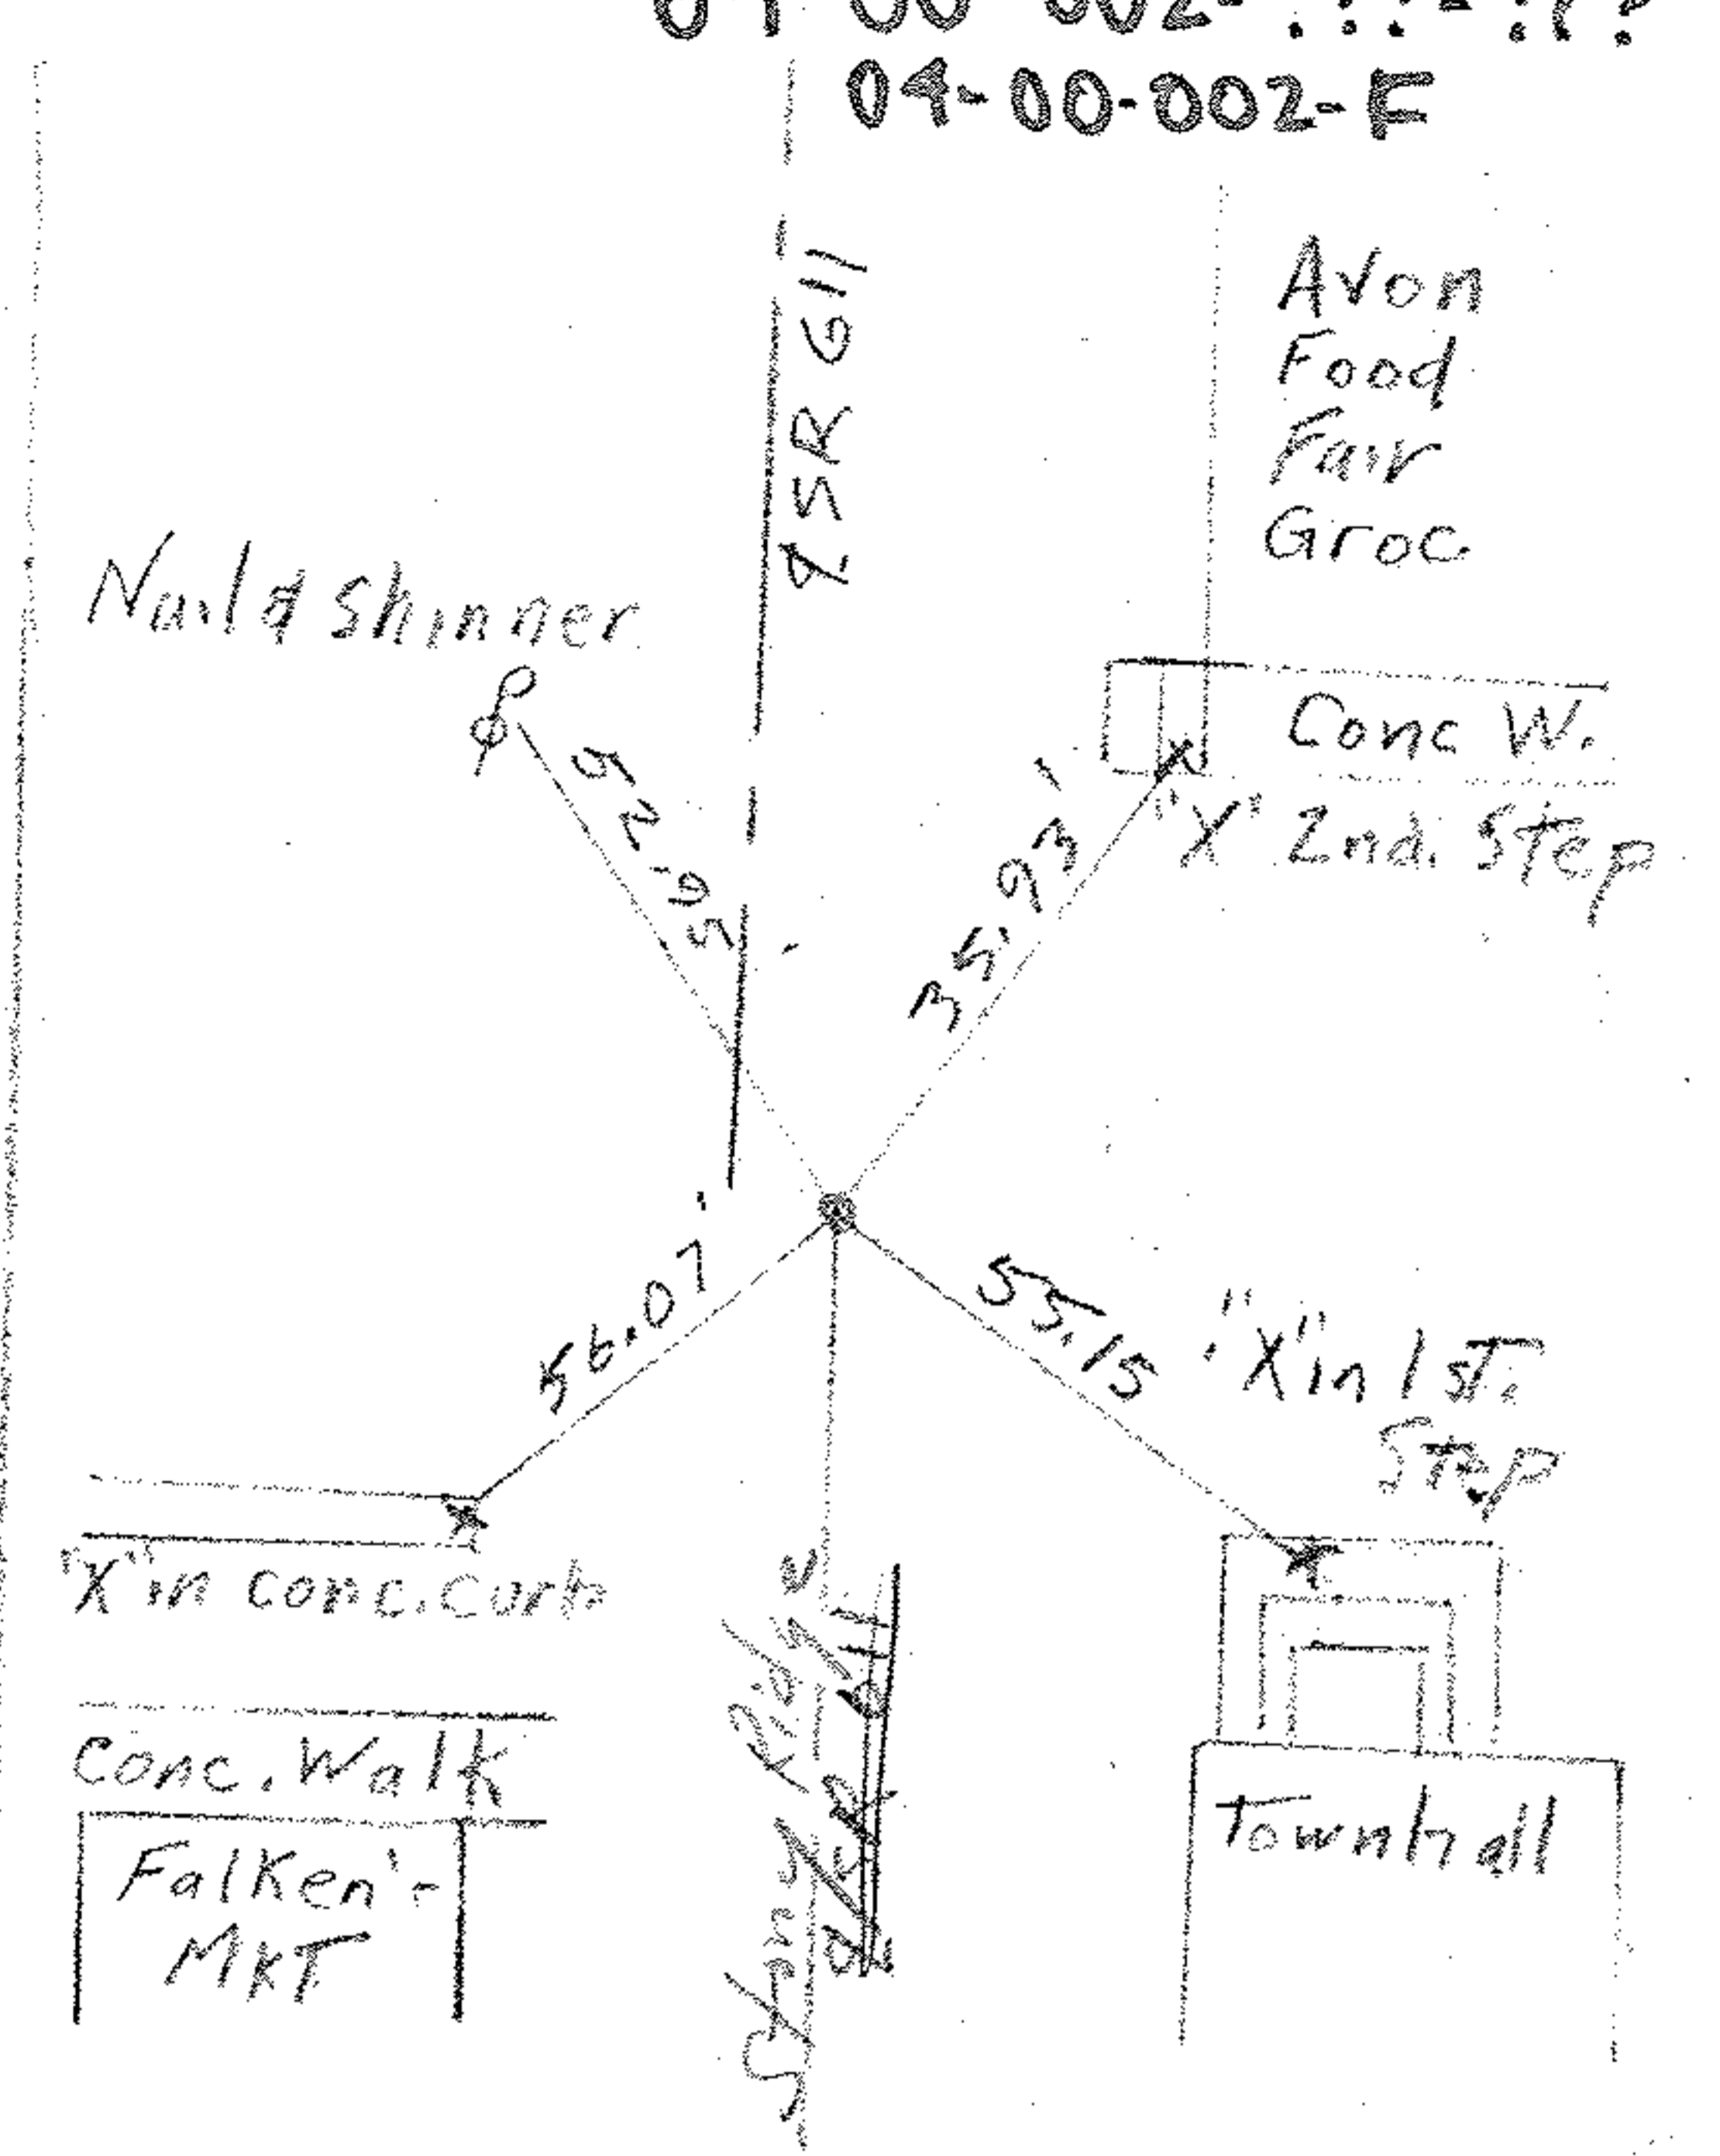 04-00-002-???-???
04-00-002-F
℄ SR 611
Avon
Food
Fair
Groc.
Nail & Shinner
52.95'
35.93'
Conc W.
"X" 2nd. Step
56.07'
55.15
"X" in 1st.
Step
"X" in conc. Curb
Conc. Walk
Falken's
MKT
Stony Ridge
℄ SR 611
Townhall